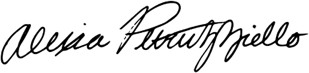 Alexia Petruzziello